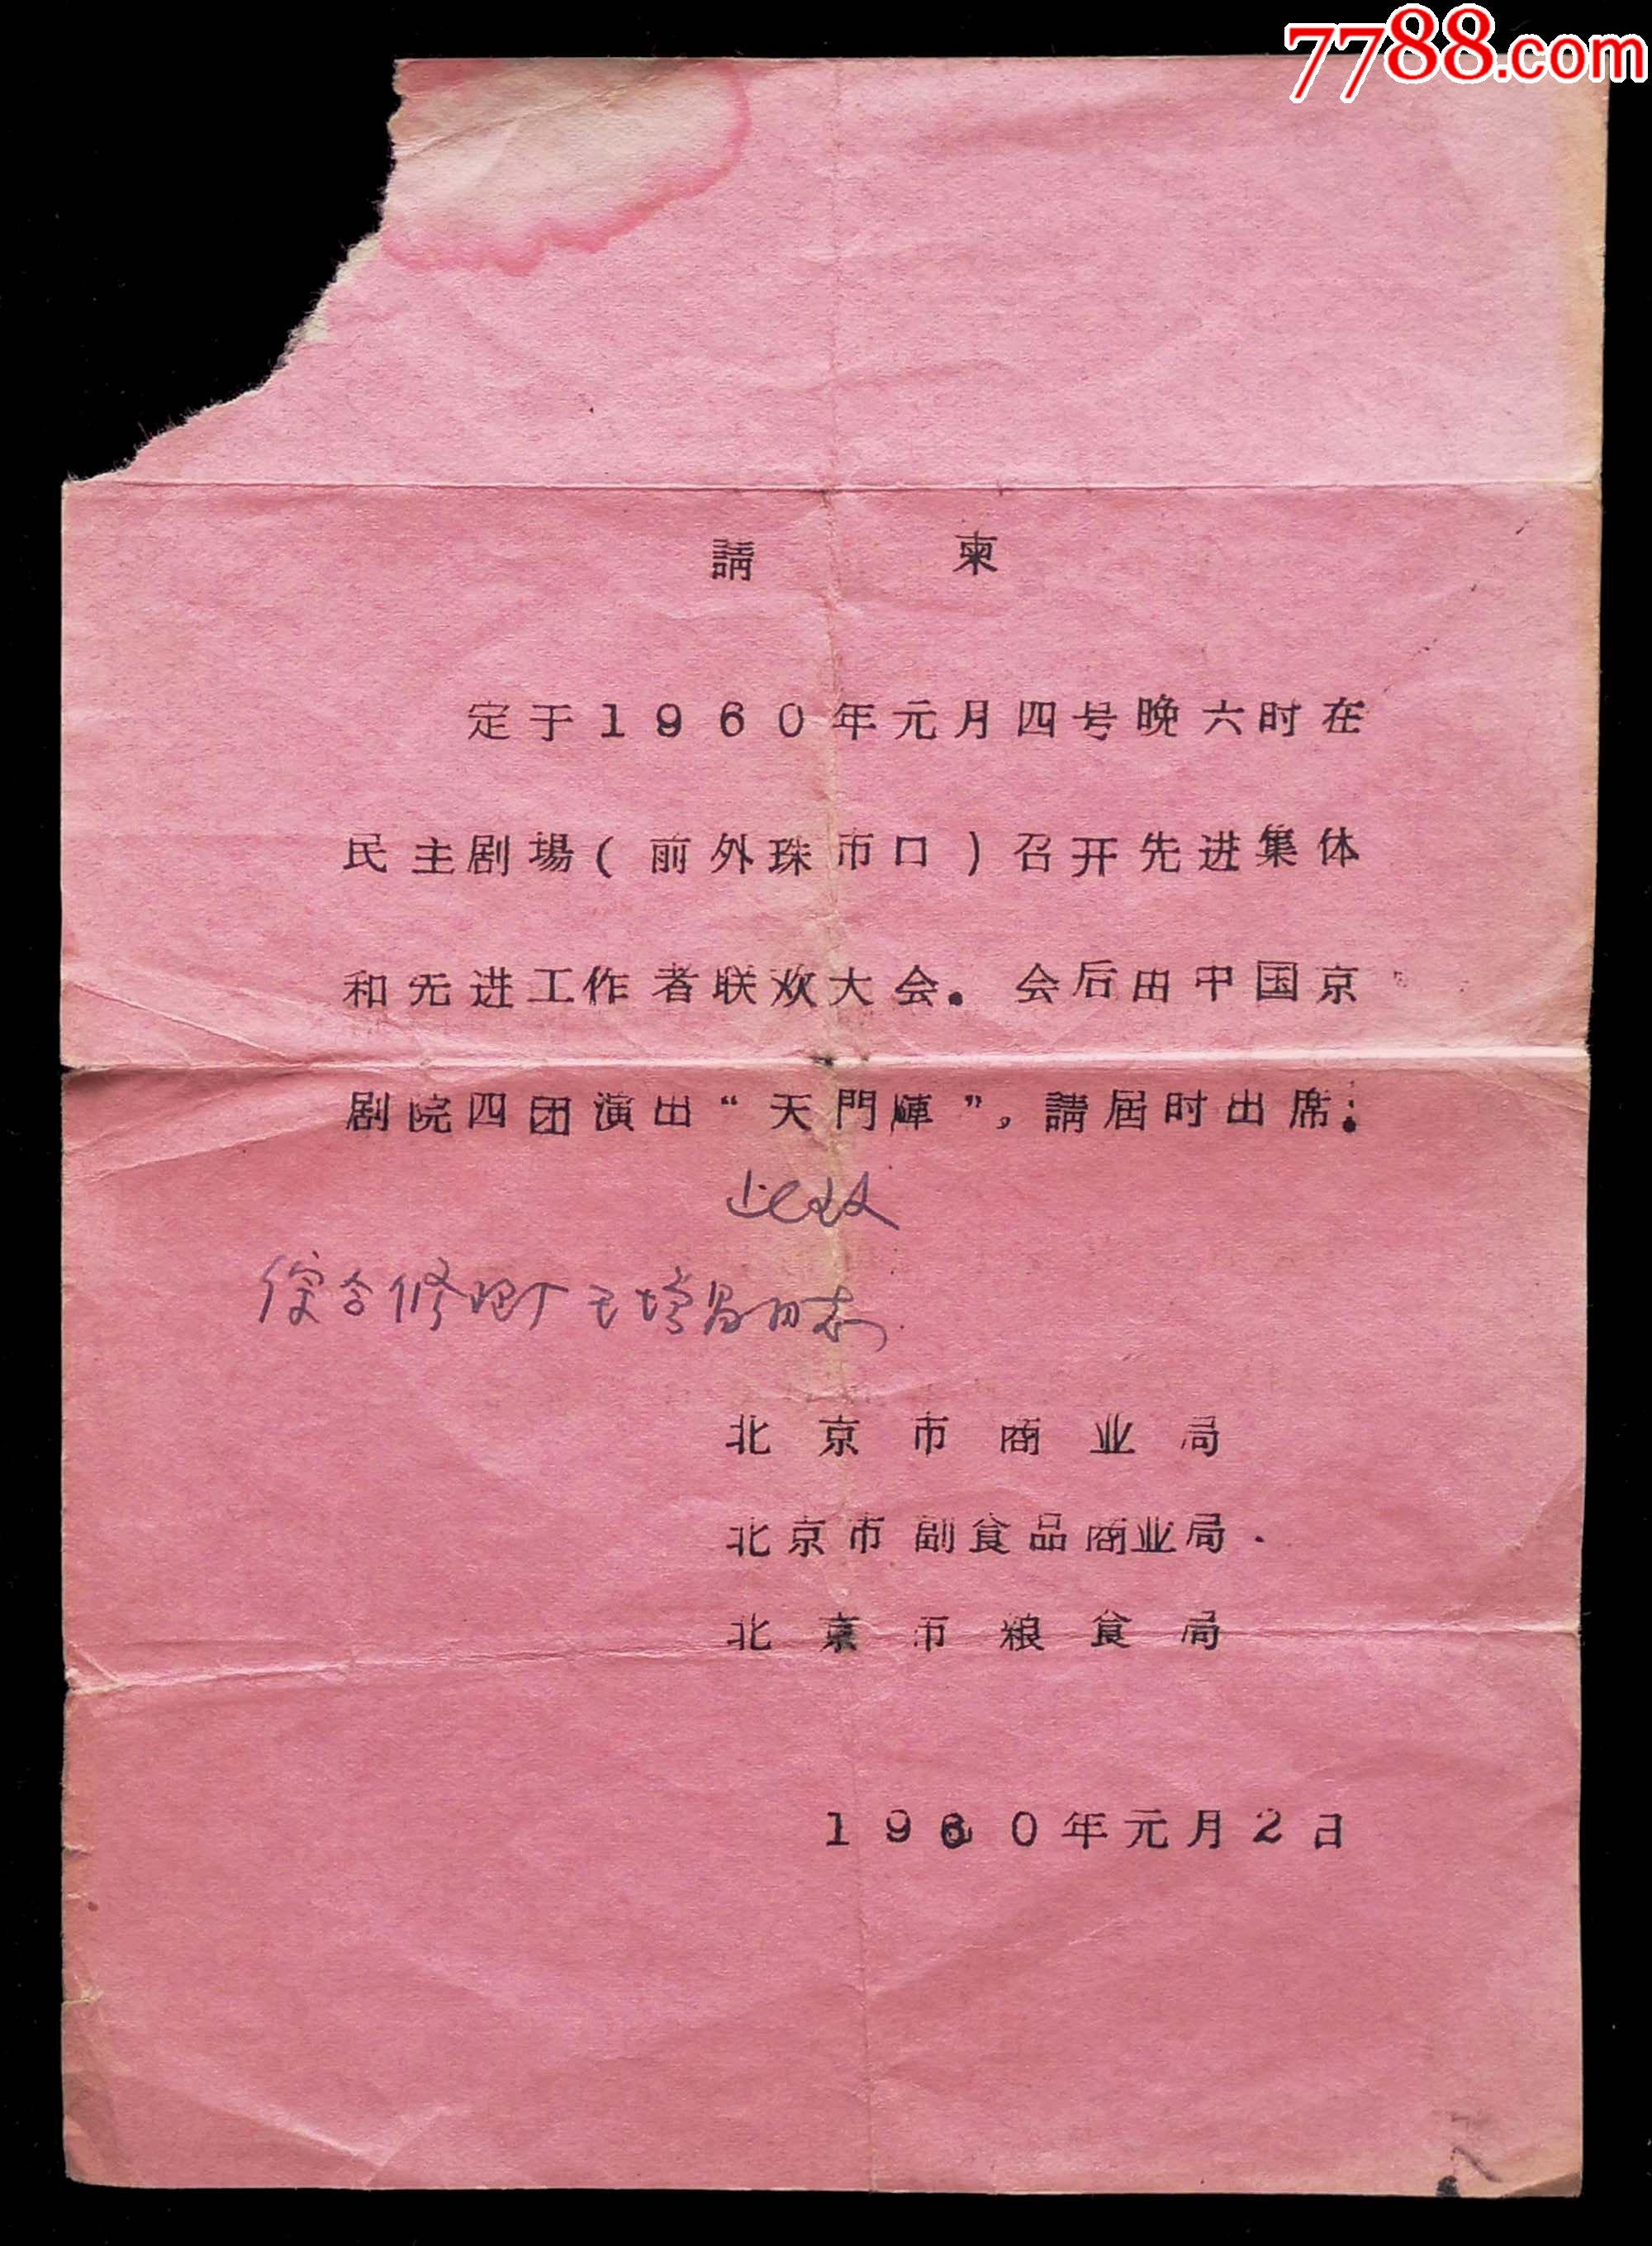 7788.com
請 柬
定于1960年元月四号晚六时在
民主剧場(前外珠市口)召开先进集体
和先进工作者联欢大会。会后由中国京
剧院四团演出“天門陣”,請届时出席:
此致
综合修理厂王增昌同志
北京市商业局
北京市副食品商业局.
北京市粮食局
1960年元月2日